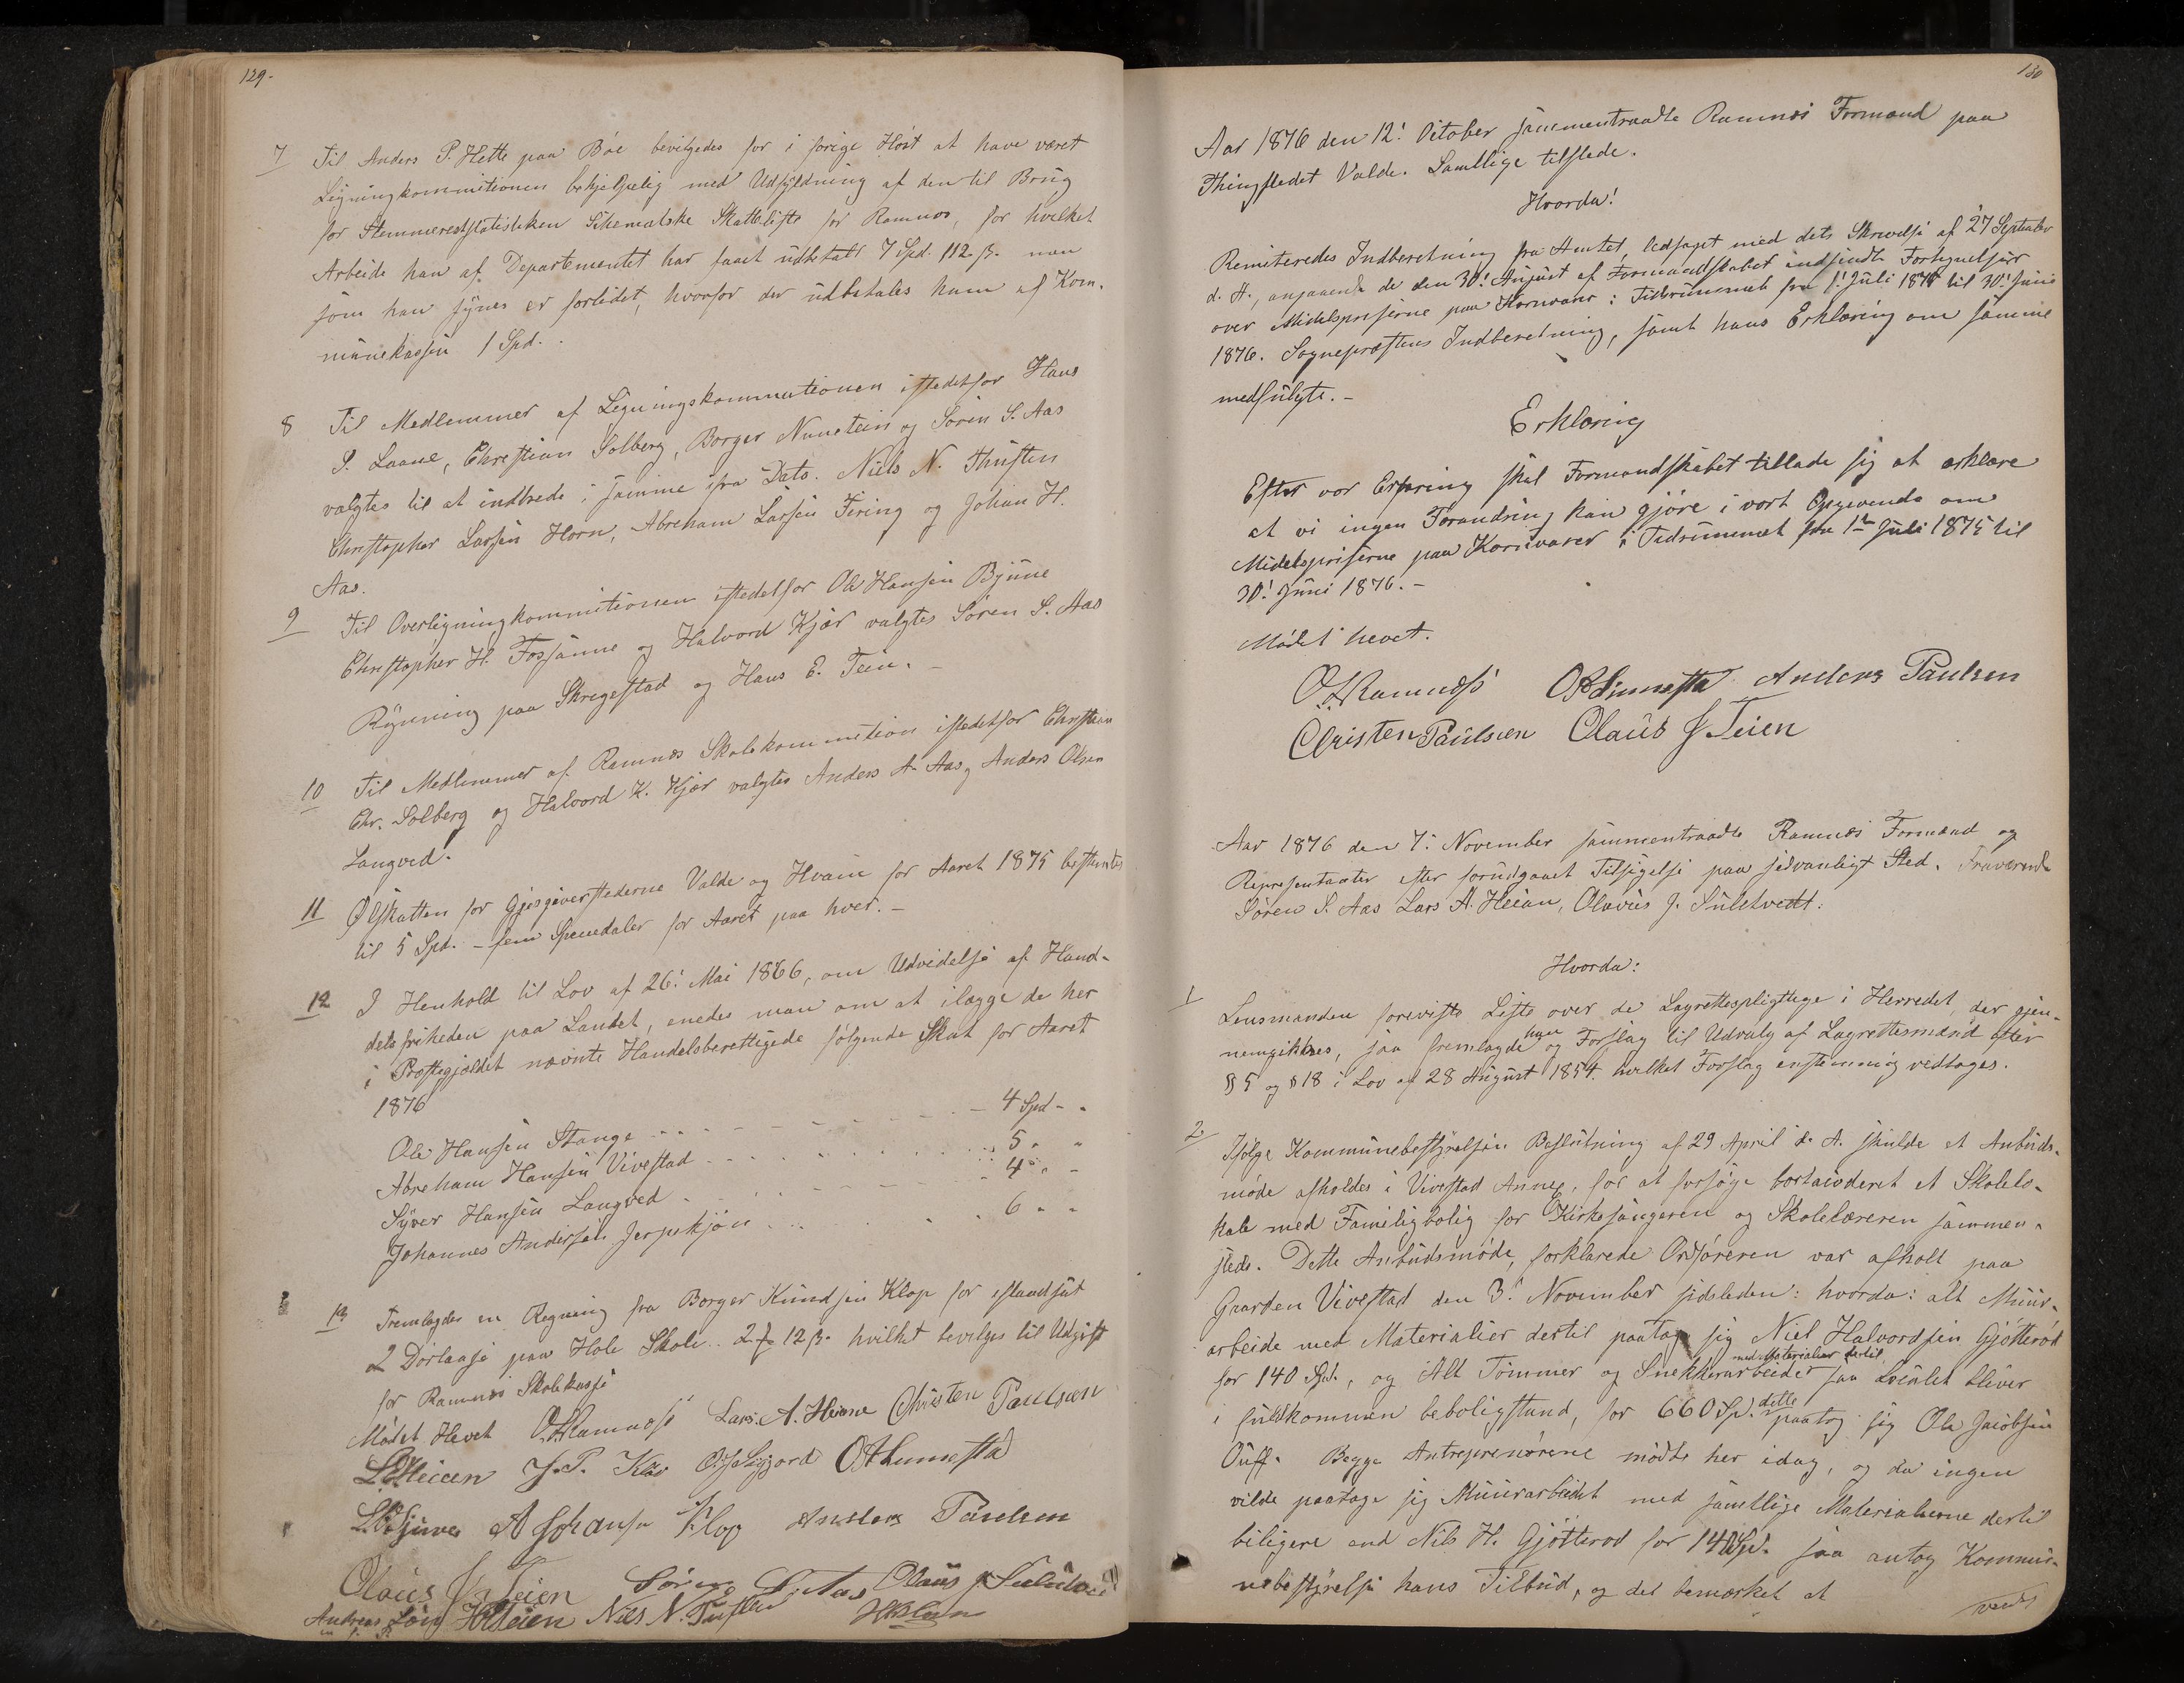 129.
7 Til Anders P. Hette paa Bøe bevilgedes for i forige Høst at have været
Ligningkommitionen behjelpelig med Udfyldning af den til Brug
for Stemmeretstatistiken Sikematiske Skatteliste for Ramnæs, for hvilket
Arbeide han af Departementet har faaet udbetalt 7 Spd. 112 ß. men
som han synes er forlidet, hvorfor der udbetales ham af Kom-
münekassen 1 Spd.
8 Til Medlemmer af Ligningskommitionen istedetfor Hans
P. Laane, Christian Solberg, Borger Nunstein og Søren S. Aas
valgtes til at indtræde i samme ifra Dato. Niels N. Thuften
Christopher Larsen Horn, Abraham Larsen Firing og Johan H.
Aas.
9 Til Overligningkommitionen istedetfor Ole Hansen Bjune
Christopher H. Fossanne og Halvord Kjær valgtes Søren S. Aas
Rynning paa Skregestad og Hans E. Tein. -
10 Til Medlemmer af Ramnæs Skolekommition istedetfor Christian
Chr. Solberg og Halvord K. Kjær valgtes Anders A. Aas og Anders Olsen
Langved.
11 Ølskatten for Gjesgiverstederne Valde og Hvam for Aaret 1875 bestemtes
til 5 Spd. - fem Speciedaler for Aaret paa hver. -
12 I Henhold til Lov af 26! Mai 1866, om Udvidelse af Hand-
delsfriheden paa Landet, enedes man om at ilægge de her
i Præstegjeldet nævnte Handelsberettigede følgende Skat for Aaret
1876
Ole Hansen Stange - - - 4 Spd - "
Abraham Hansen Vivestad - - - 5 " "
Syver Hansen Langved - - - 4 " "
Johannes Andersen Jerpekjøn - - - 6 " "
13 Fremlagdes en Regning fra Borger Knudsen Klop for istandsat
2 Dørlaase paa Hole Skole.. 2 12 ß. hvilket bevilges til Udgift
for Ramnæs Skolekasse
Mødet Hevet O. Ramnæss Lars A. Heian Christen Paulsen
L Heian J. P. Kær O Linnestad
A Johansen Klop Anders Paulsen
Olaus J Teien Søren S. Aas Olaus J Sulutvedt
Andreas Niels N. Tuften
130
Aar 1876 den 12! October sammentraadte Ramnæs Formænd paa
Thingstedet Valde. Samtlige tilstede.
Hvorda!
Remiteredes Indberetning fra Amtet, ledsaget med dets Skrivelse af 27 September
d. A., angaaende de den 30! August af Formandskabet indsendte Fortegnelser
over Midelspriserne paa Kornvarer i Tidrummet fra 1! Juli 1875 til 30! Juni
1876. Sogneprestens Indberetning, samt hans Erklæring om samme
medfulgte. -
Erklæring
Efter vor Erfaring skal Formandskabet tillade sig at erklære
at vi ingen Forandring kan gjøre i vort Opgivende om
Midelspriserne paa Kornvarer i Tidrummet fra 1ste Juli 1875 til
30! Juni 1876. -
Mødet hevet.
O. Ramnæss O Linnesta Anders Paulsen
Christen Paulsen Olaus J Teien
Aar 1876 den 7! November sammentraadte Ramnæs Formænd og
Representanter efter forudgaaet Tilsigelse paa sedvanligt Sted. Fraværende
Søren S. Aas Lars A. Heian, Olavus J. Sulutvedt.
Hvorda:
1 Lensmanden foreviste Liste over de Lagrettespligtige i Herredet, der gjen-
nemgikkes, saa fremlagde han og Forslag til Udvalg af Lagrettesmænd efter
§ 5 og § 18 i Lov af 28 August 1854. hvilket Forslag enstemmig vedtages.
2 Ifølge Kommunebestyrelsens Beslutning af 29 April d. A. skulde et Anbuds-
møde afholdes i Vivestad Annex, for at forsøge bortakorderet et Skolelo-
kale med Familiebolig for Kirkesangeren og Skolelæreren sammen-
steds. Dette Anbudsmøde, forklarede Ordføreren var afholt paa
Gaarden Vivestad den 3! November sidsleden: hvorda: alt Muur-
arbeide med Materialier dertil paatog sig Niel Halvordsen Gjøtterød
for 140 Spd., og Alt Tømmer og Snekkerarbeide med Materialier dertil saa Localet bliver
i fuldkommen beboligstand, for 660 Spd. dette paatog sig Ole Jacobsen
Ouff. Begge Antreprenørene mødte her idag, og da ingen
vilde paatage sig Muurarbeidet med samtlige Materialierne dertil
biligere end Nils H. Gjøtterød for 140 Spd. saa antog Kommu-
nebestyrelse hans Tilbud, og det bemærket at
vend